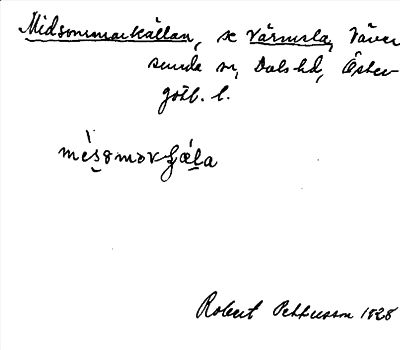 Midsommarkällan, se Värmsla, Väver
sunda sn, Dals hd, Öster
götl. l.
Robert Pettersson 1928